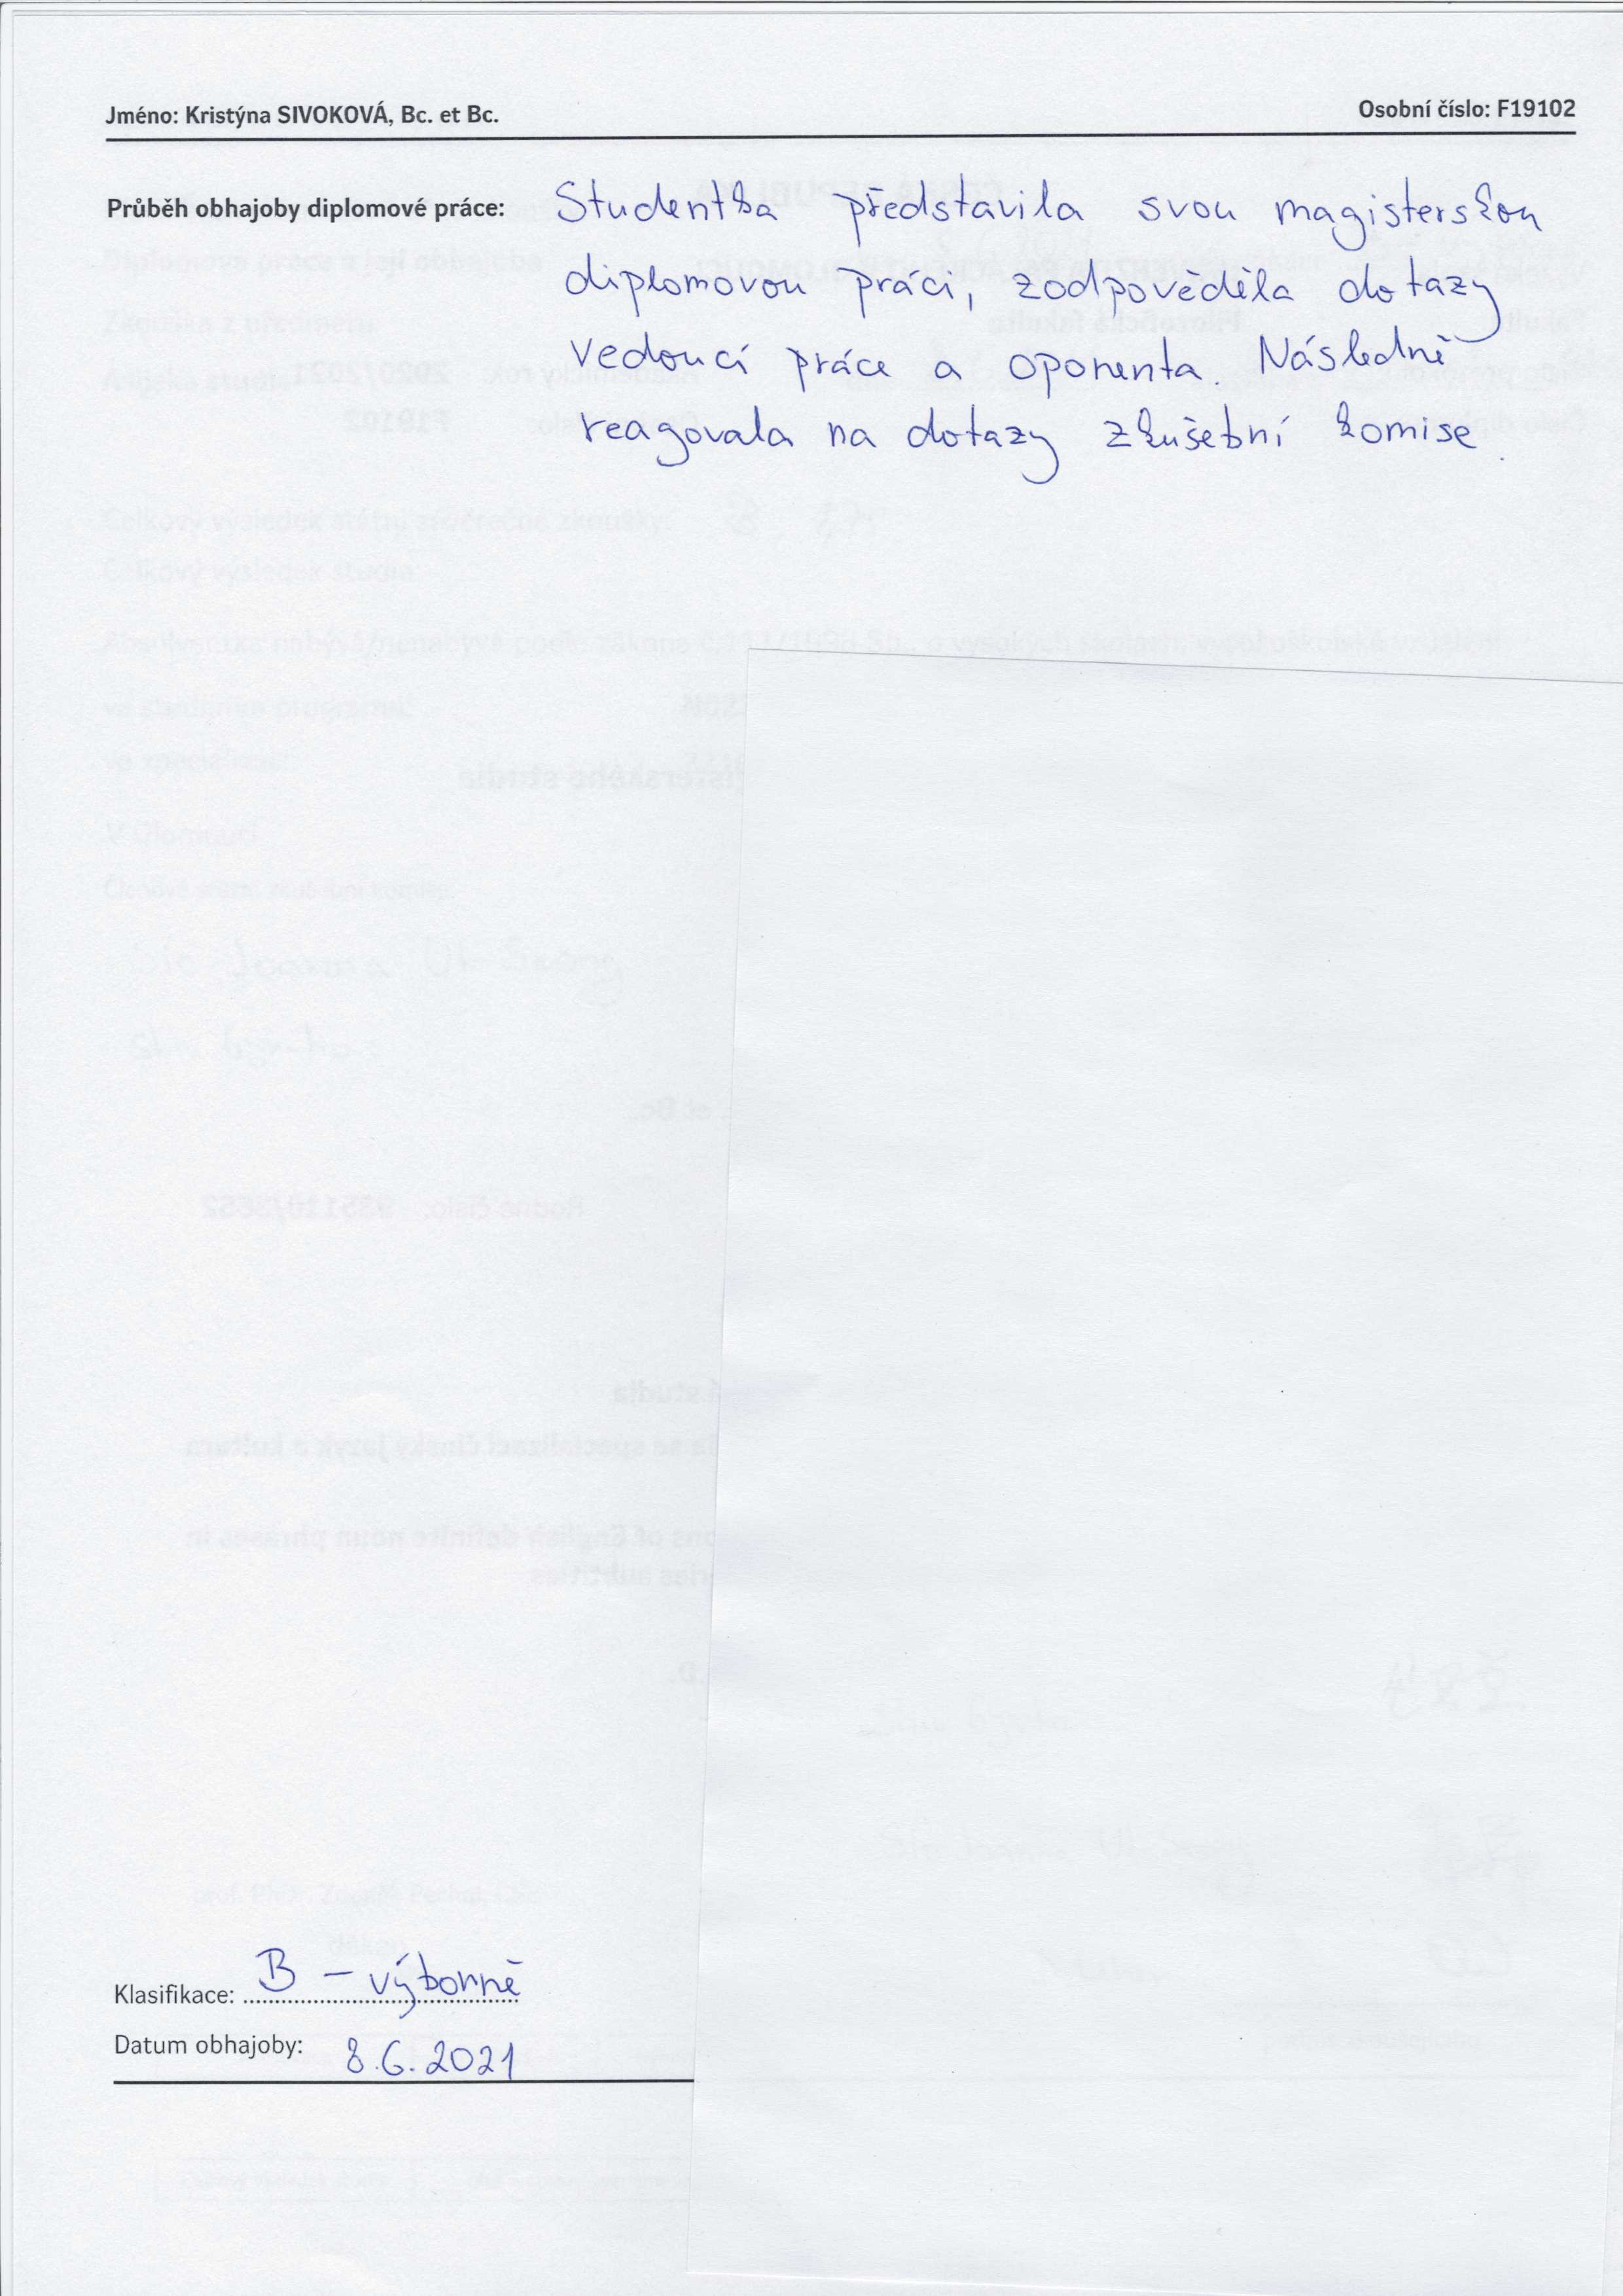 Jméno: Kristýna SIVOKOVÁ, Bc. et Bc. Osobní číslo: F19102
Průběh obhajoby diplomové práce: Studentka představila svou magisterskou
diplomovou práci, zodpověděla dotazy
vedoucí práce a oponenta. Následně
reagovala na dotazy zkušební komise.
Klasifikace: B – výborně
Datum obhajoby: 8.6.2021